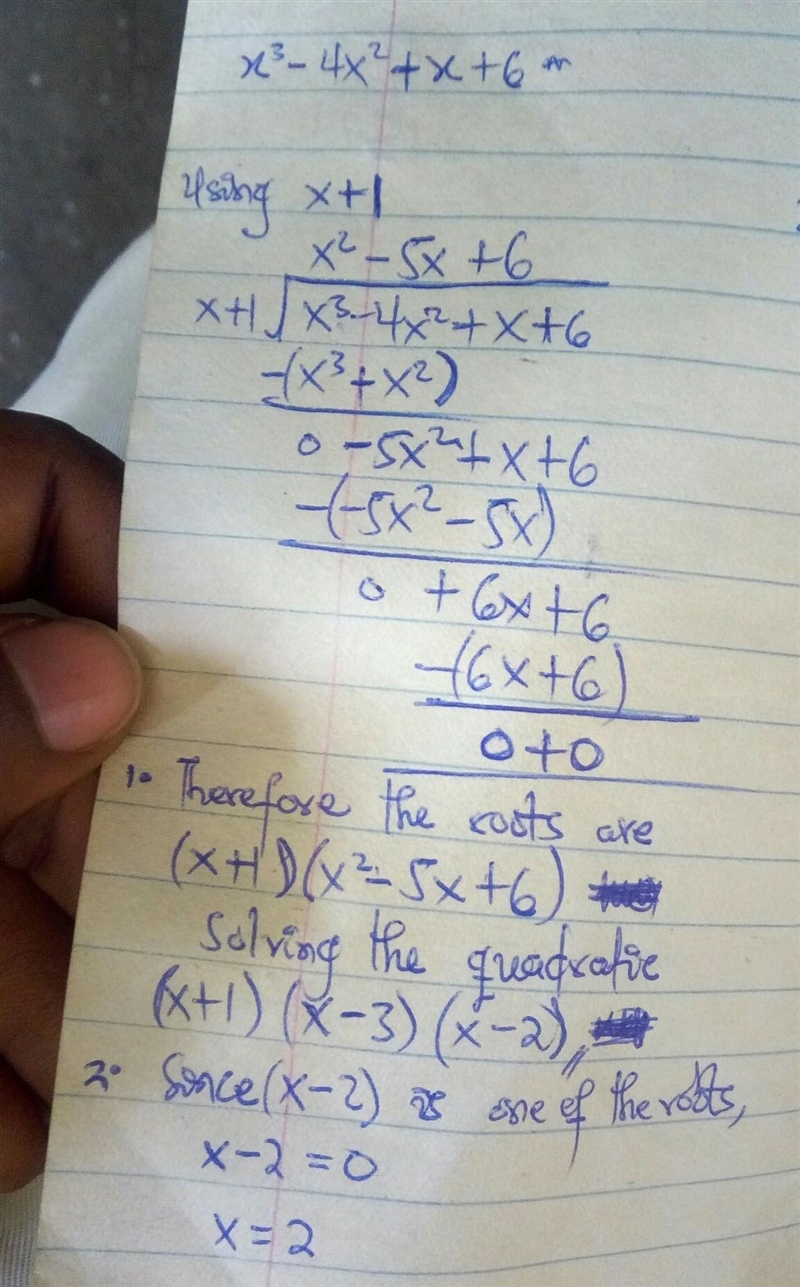 x³ - 4x² + x + 6
Using x+1
x² - 5x + 6
x+1 √ x³ - 4x² + x + 6
-(x³ + x²)
0 - 5x² + x + 6
-(-5x² - 5x)
0 + 6x + 6
-(6x + 6)
0 + 0
1. Therefore the roots are
(x+1)(x² - 5x + 6)
Solving the quadratic
(x+1) (x-3) (x-2),,
2. Since (x-2) is one of the roots,
x - 2 = 0
x = 2